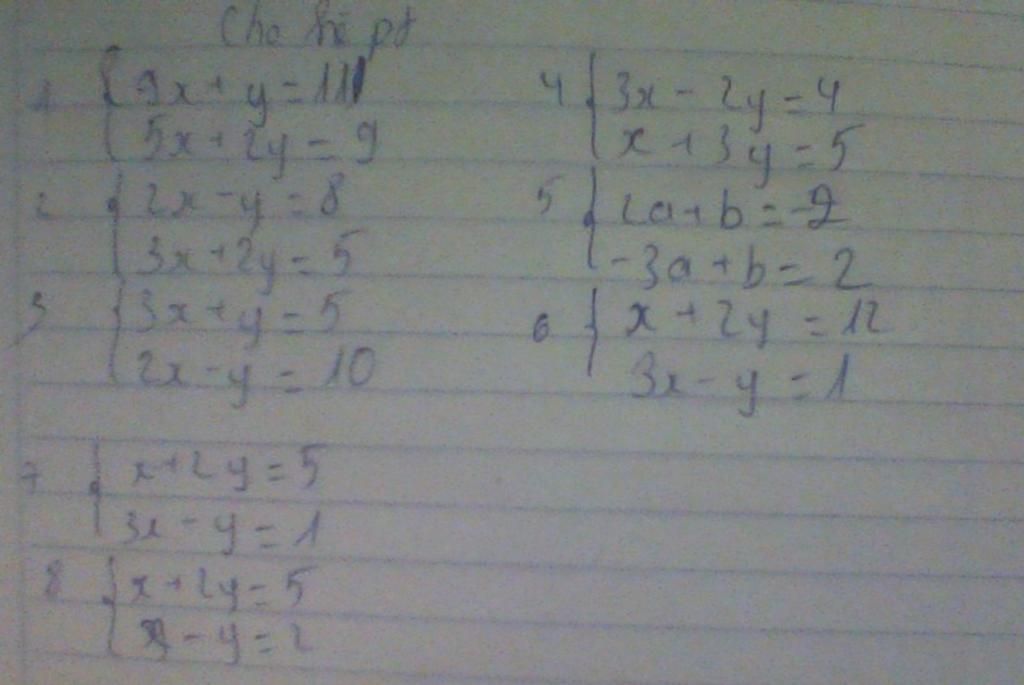 Cho hệ pt
1 { 9x + y = 11
5x + 2y = 9
2 { 2x - y = 8
3x + 2y = 5
3 { 3x + y = 5
2x - y = 10
4 { 3x - 2y = 4
x + 3y = 5
5 { 2a + b = -2
-3a + b = 2
6 { x + 2y = 12
3x - y = 1
7 { x + 2y = 5
3x - y = 1
8 { x + 2y = 5
x - y = 2